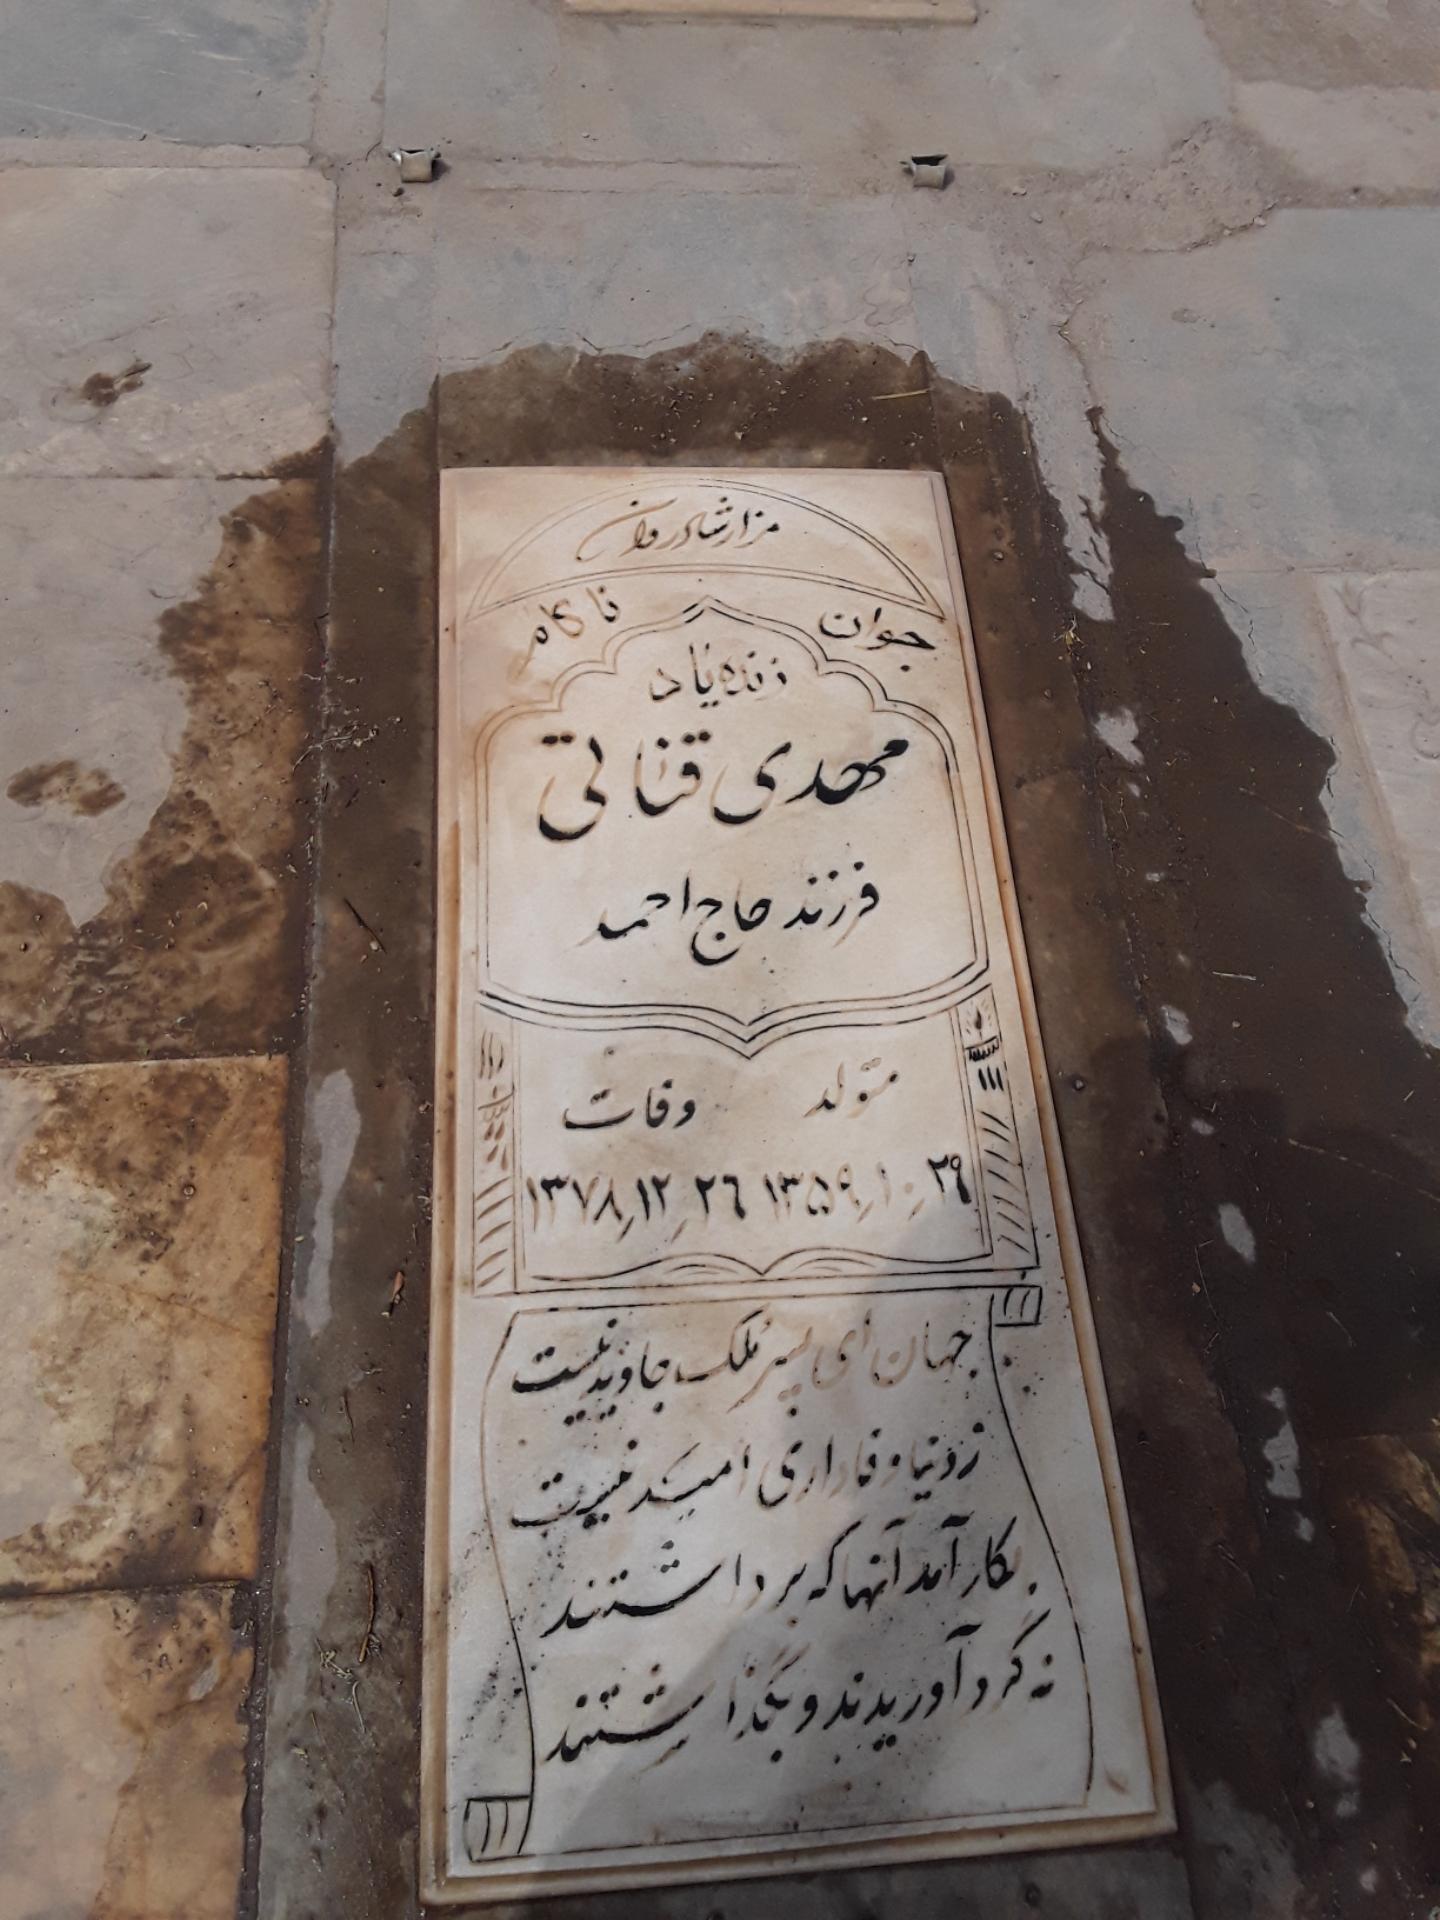 مزار شادروان
جوان ناکام
زنده یاد
مهدی قناتی
فرزند حاج احمد
متولد وفات
۱۳۵۹٫۱۰٫۲۹ ۱۳۷۸٫۱۲٫۲۶
جهان ای پسر مُلک جاوید نیست
ز دنیا وفاداری امید نیست
بکار آمد آنها که برداشتند
نه گرد آوریدند و بگذاشتند